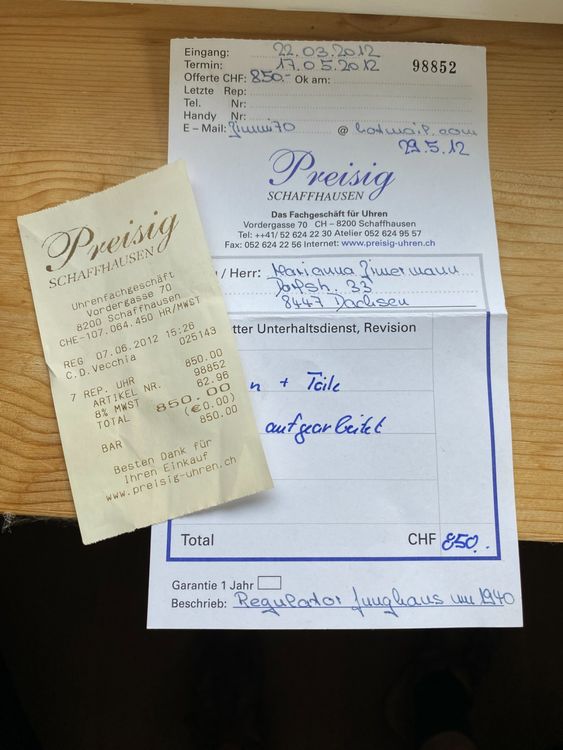 Eingang: 22.03.2012
Termin: 17.05.2012 98852
Offerte CHF: 850.- Ok am:
Letzte Rep:
Tel. Nr:
Handy Nr:
E – Mail: Jimmi70 @ hotmail.com
29.5.12
Preisig
SCHAFFHAUSEN
Das Fachgeschäft für Uhren
Vordergasse 70 CH – 8200 Schaffhausen
Tel: ++41/ 52 624 22 30 Atelier 052 624 95 57
Fax: 052 624 22 56 Internet: www.preisig-uhren.ch
/ Herr: Marianna Zimermann
Dorfstr. 33
8447 Dachsen
tter Unterhaltsdienst, Revision
n + Teile
aufgearbeitet
Total CHF 850.-
Garantie 1 Jahr
Beschrieb: Regulator Junghaus um 1940
Preisig
SCHAFFHAUSEN
Uhrenfachgeschäft
Vordergasse 70
8200 Schaffhausen
CHE-107.064.450 HR/MWST
REG 07.06.2012 15:26
C.D.Vecchia 025143
7 REP. UHR 850.00
ARTIKEL NR. 98852
8% MWST 62.96
TOTAL 850.00
(€0.00)
BAR 850.00
Besten Dank für
Ihren Einkauf
www.preisig-uhren.ch